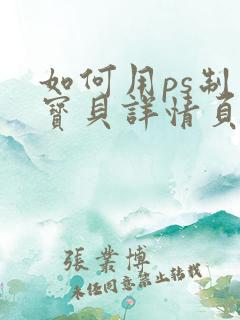 如何用ps制
寶貝詳情頁
張業博
未经同意禁止转载